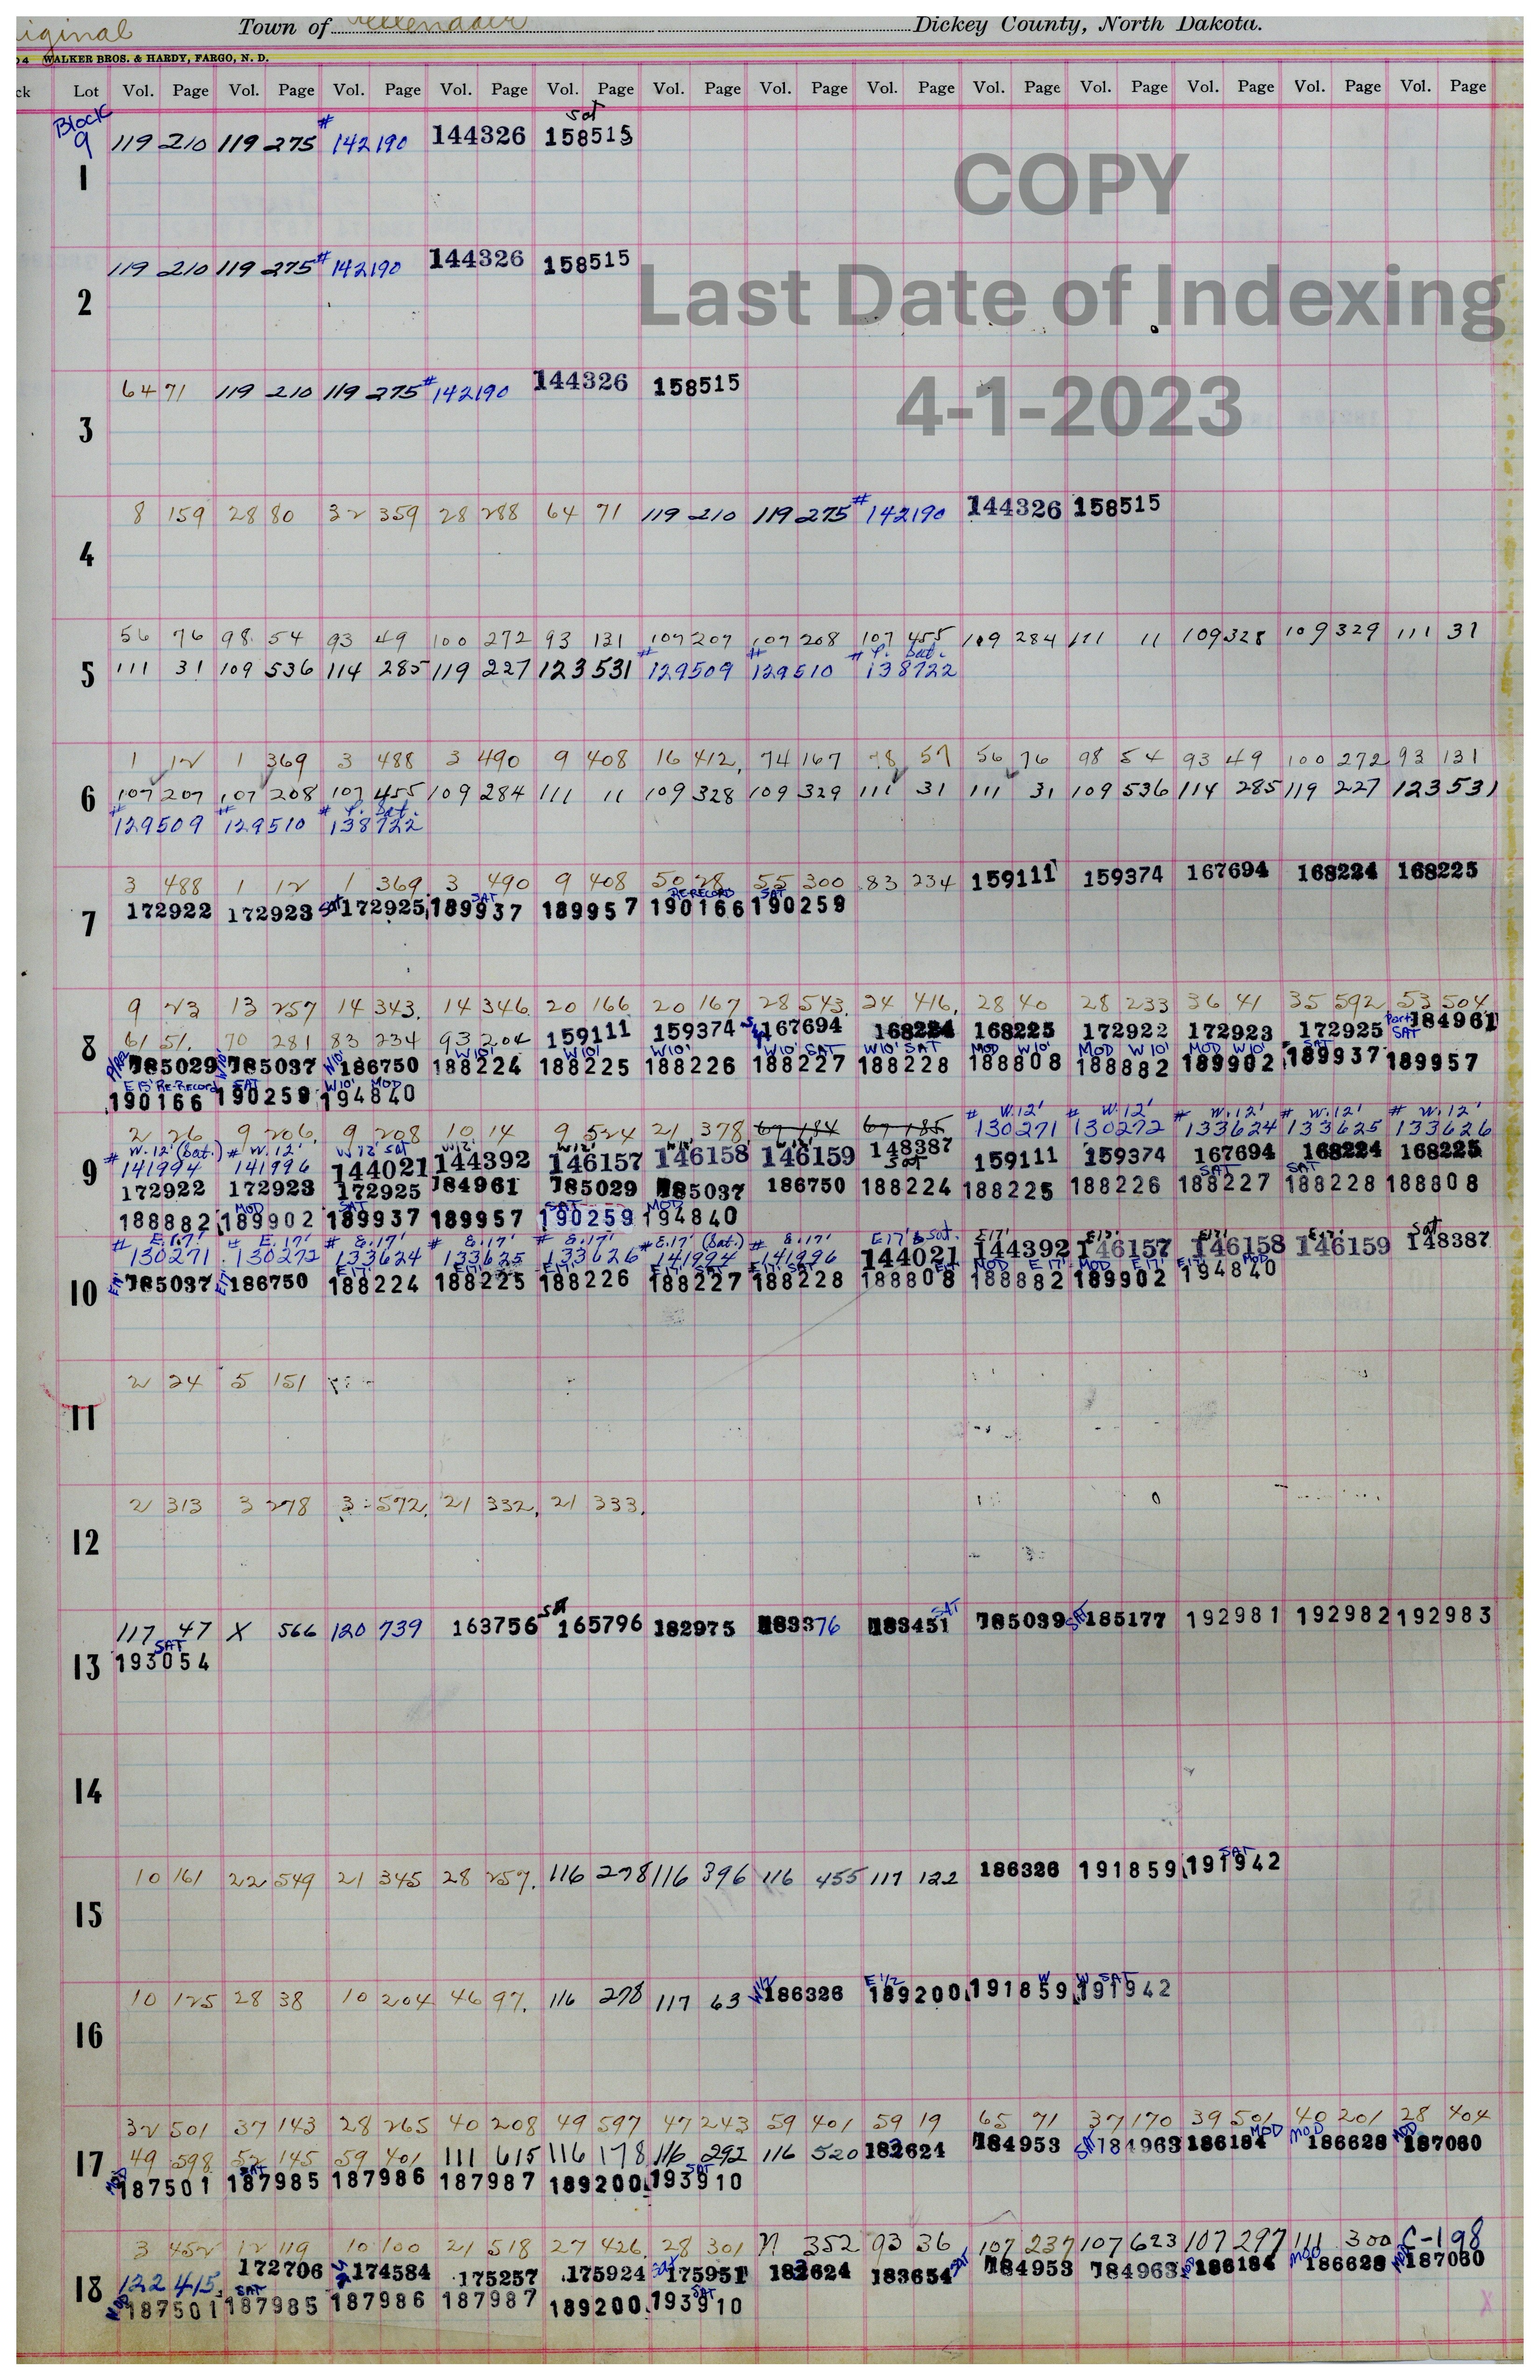 iginal Town of Ellendale Dickey County, North Dakota.
04 WALKER BROS. & HARDY, FARGO, N. D.
ck Lot Vol. Page Vol. Page Vol. Page Vol. Page Vol. Page Vol. Page Vol. Page Vol. Page Vol. Page Vol. Page Vol. Page Vol. Page Vol. Page
Block Sat
9 119 210 119 275 # 142190 144326 158515
1
COPY
119 210 119 275 # 142190 144326 158515
2
Last Date of Indexing
64 71 119 210 119 275 # 142190 144326 158515
3
4-1-2023
8 159 28 80 32 359 28 288 64 71 119 210 119 275 # 142190 144326 158515
4
56 76 98 54 93 49 100 272 93 131 107 207 107 208 107 455 109 284 111 11 109 328 109 329 111 31
# # # P. Sat.
5 111 31 109 536 114 285 119 227 123 531 129509 129510 138722
1 12 1 369 3 488 3 490 9 408 16 412, 74 167 78 57 56 76 98 54 93 49 100 272 93 131
6 107 207 107 208 107 455 109 284 111 11 109 328 109 329 111 31 111 31 109 536 114 285 119 227 123 531
# # # P. Sat.
129509 129510 138722
3 488 1 12 1 369 3 490 9 408 50 28 55 300 83 234 159111 159374 167694 168224 168225
SAT RE-RECORD SAT
7 172922 172923 Sat 172925 189937 189957 190166 190259
9 23 13 257 14 343. 14 346. 20 166 20 167 28 543. 24 416, 28 40 28 233 36 41 35 592 53 504
61 51. 70 281 83 234 93 204 159111 159374 167694 168224 168225 172922 172923 172925 Part SAT 184961
W10' W10' W10' W10' SAT W10' SAT MOD W10' MOD W10' MOD W10' SAT
8 185029 185037 W10' 186750 188224 188225 188226 188227 188228 188808 188882 189902 189937 189957
E 15' Re-Record SAT W10' MOD
190166 190259 194840
# W.12' # W.12' # W.12' # W.12' # W.12'
2 26 9 206. 9 208 10 14 9 524 21 378 67 184 67 185 130271 130272 133624 133625 133626
# W.12' (Sat.) # W.12' W 12' Sat W12' W12' W12' W12'
9 141994 141996 144021 144392 146157 146158 146159 148387 Sat 159111 159374 167694 168224 168225
SAT SAT
172922 172923 172925 184961 185029 185037 186750 188224 188225 188226 188227 188228 188808
MOD SAT SAT MOD
188882 189902 189937 189957 190259 194840
# E.17' # E.17' # E.17' # E.17' # E.17' # E.17' (Sat.) # E.17' E17' & Sat. E17' E17' E17' E17' Sat
130271 130272 133624 133625 133626 141994 141996 144021 144392 146157 146158 146159 148387
E17' E17' E17' E17' E17' E17' SAT E17' SAT E17' MOD E17' MOD E17' E17' MOD
10 185037 186750 188224 188225 188226 188227 188228 188808 188882 189902 194840
2 24 5 151
11
2 313 3 278 3 572, 21 332, 21 333.
12
117 47 X 566 120 739 163756 SAT 165796 182975 183376 183451 SAT 185039 SAT 185177 192981 192982 192983
SAT
13 193054
14
10 161 22 549 21 345 28 257. 116 278 116 396 116 455 117 122 186326 191859 191942 SAT
15
10 125 28 38 10 204 46 97. 116 278 117 63 W1/2 186326 E 1/2 189200 191859 W W SAT 191942
16
32 501 37 143 28 265 40 208 49 597 47 243 59 401 59 19 65 71 37 170 39 501 40 201 28 404
49 598 52 145 59 401 111 615 116 178 116 292 116 520 182624 184953 184963 186184 MOD MOD 186628 MOD 187060
17 MOD SAT SAT
187501 187985 187986 187987 189200 193910
3 452 12 119 10 100 21 518 27 426. 28 301 N 352 93 36 107 237 107 623 107 297 111 300 C-198
122 415 172706 174584 175257 175924 Sat 175951 182624 183654 184953 184963 186184 MOD 186628 187060
18 MOD SAT SAT
187501 187985 187986 187987 189200 193910
X